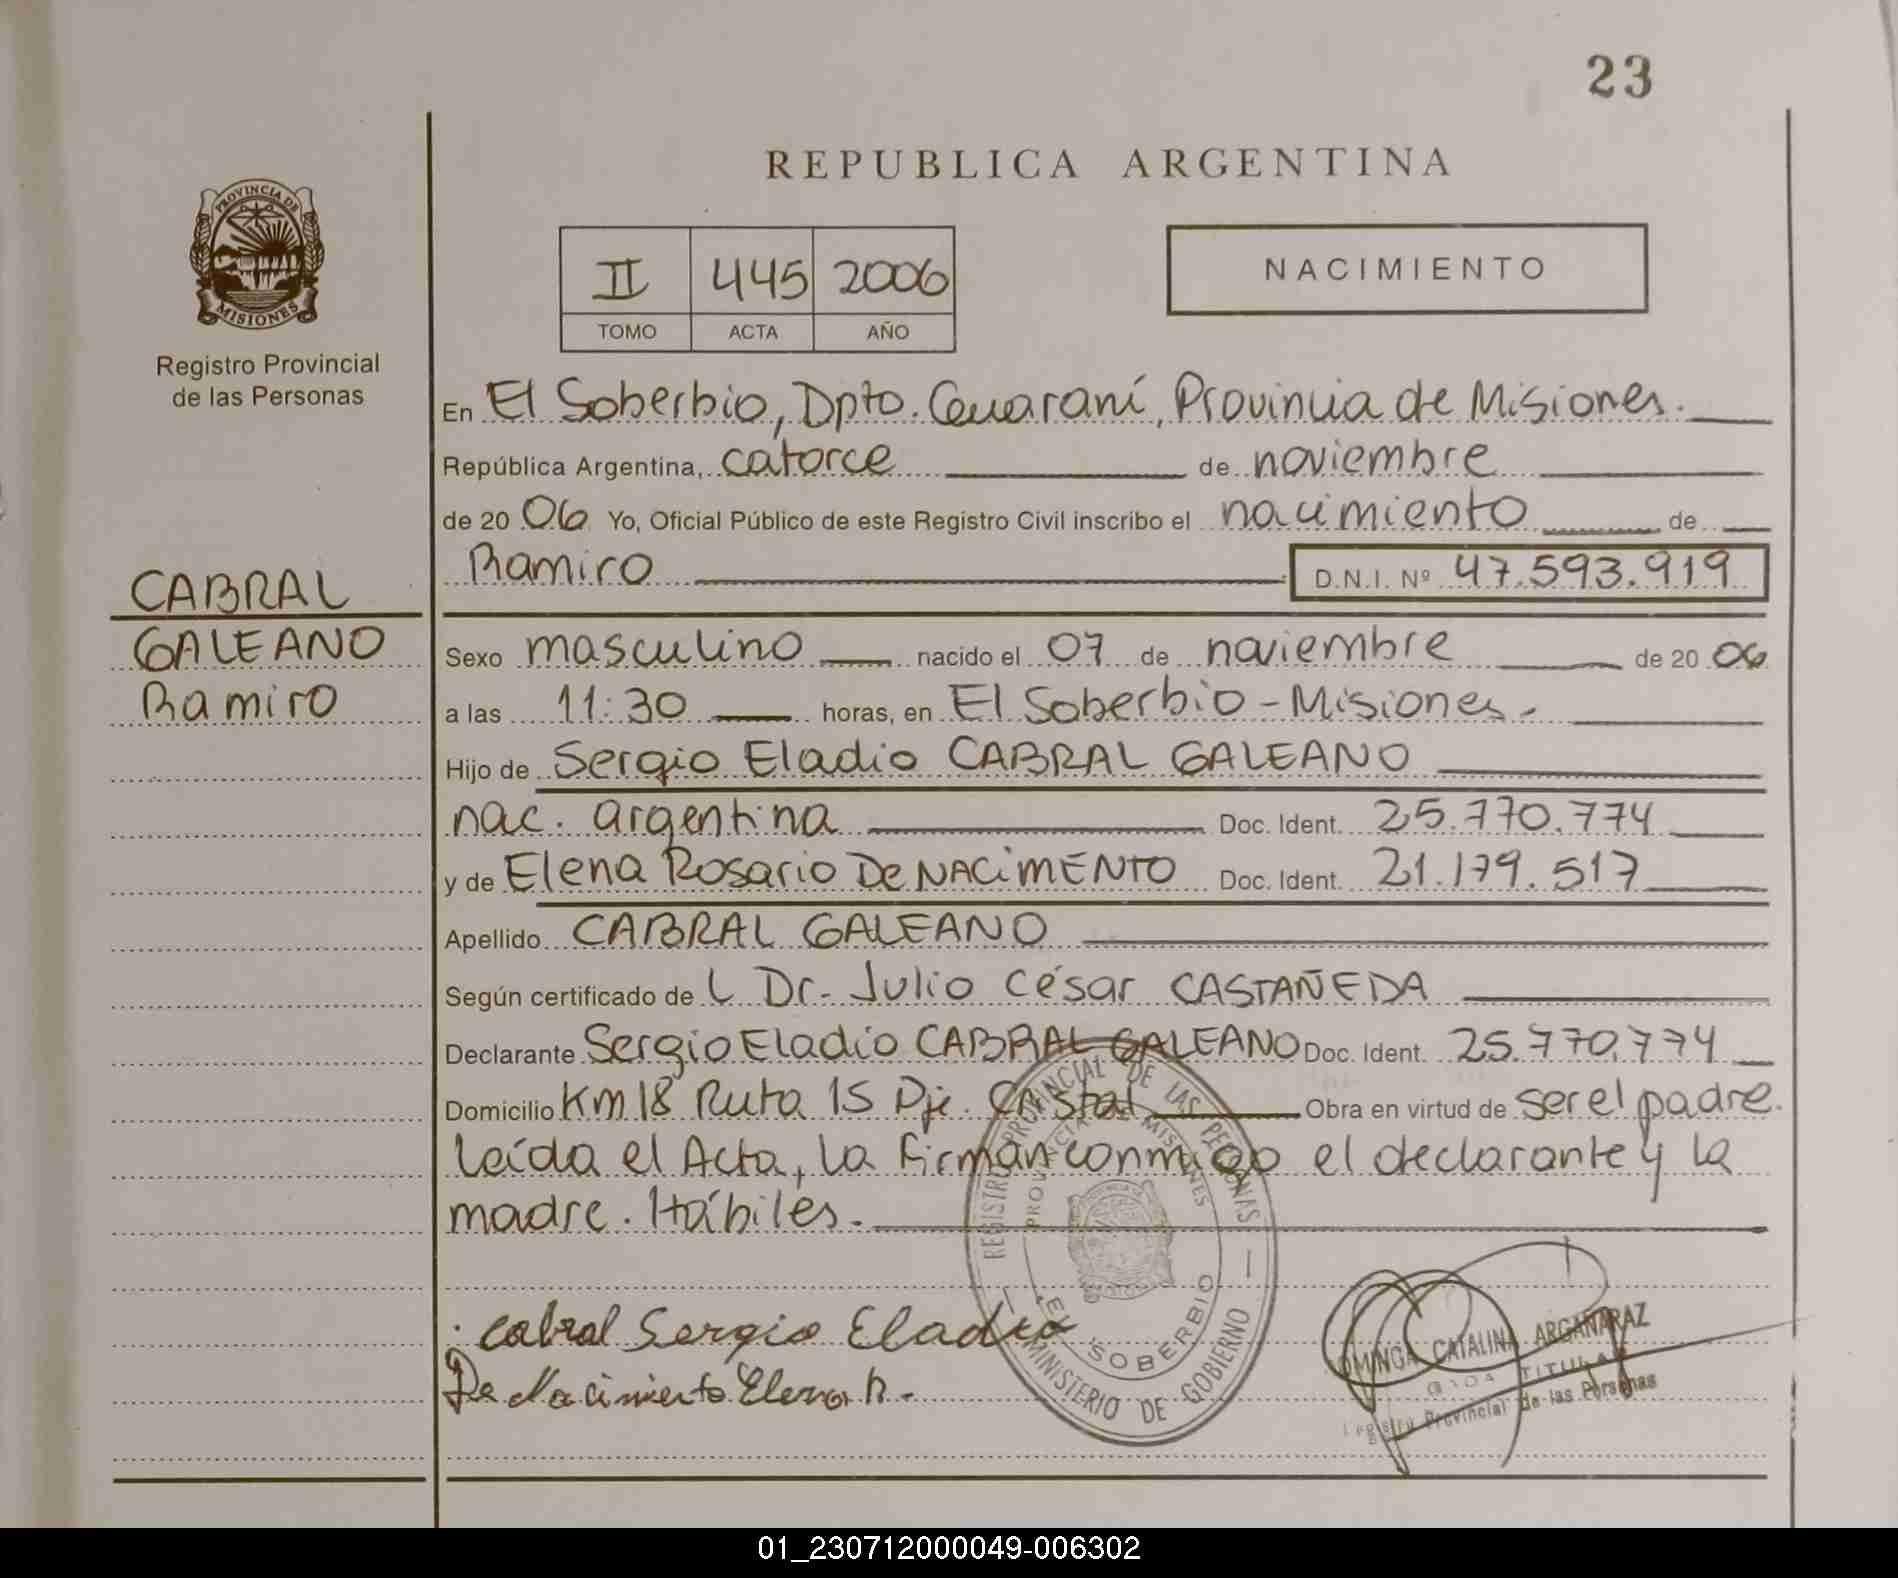 23
REPUBLICA ARGENTINA
PROVINCIA DE
MISIONES
Registro Provincial
de las Personas
II 445 2006
TOMO ACTA AÑO
NACIMIENTO
En El Soberbio, Dpto. Guaraní, Provincia de Misiones.
República Argentina, catorce de noviembre
de 20 06 Yo, Oficial Público de este Registro Civil inscribo el nacimiento de
Ramiro D.N.I. Nº 47.593.919
CABRAL
GALEANO
Ramiro
Sexo masculino nacido el 07 de noviembre de 20 06
a las 11:30 horas, en El Soberbio - Misiones.
Hijo de Sergio Eladio CABRAL GALEANO
nac. argentina Doc. Ident. 25.770.774
y de Elena Rosario De NACiMENTO Doc. Ident. 21.179.517
Apellido CABRAL GALEANO
Según certificado de L Dr. Julio César CASTAÑEDA
Declarante Sergio Eladio CABRAL GALEANO Doc. Ident. 25.770.774
Domicilio Km 18 Ruta 15 Pje. Cristal Obra en virtud de ser el padre.
Leída el Acta, la firman conmigo el declarante y la
madre. Hábiles.
REGISTRO PROVINCIAL DE LAS PERSONAS
MINISTERIO DE GOBIERNO
EL SOBERBIO
Cabral Sergio Eladio
De Nacimiento Elena R.
DOMINGA CATALINA ARGAÑARAZ
TITULAR
Registro Provincial de las Personas
01_230712000049-006302